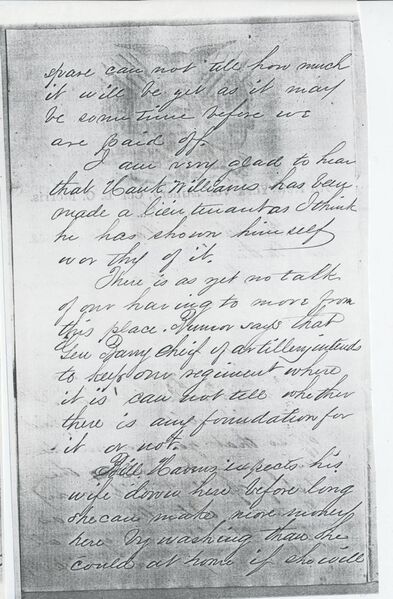 spare can not tell how much
it will be yet as it may
be some time before we
are paid of.
I am very glad to hear
that Hank Williams has been
made a lieutenant as I think
he has shown himself
worthy of it.
There is as yet no talk
of our having to move from
this place. Rumor says that
Gen Barry chief of artillery intends
to keep our regiment where
it is can not tell whether
there is any foundation for
it or not.
Bill expects his
wife down here before long
she can make more money
here by washing than she
could at home if she will